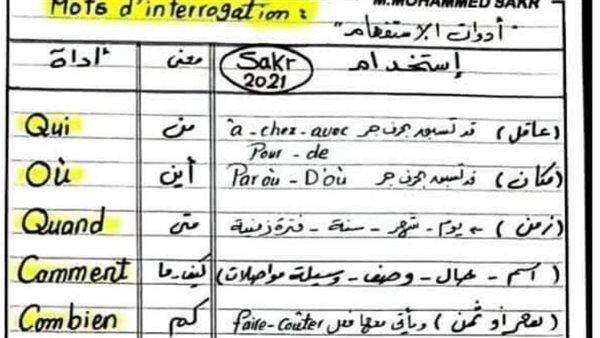 Mots d'interrogation :
M.MOHAMMED SAKR
"أدوات الاستفهام"
أداة معنى Sakr 2021 إستخدام
Qui من (عاقل) قد تسبق بحرف جر à - chez - avec
Pour - de
Où أين (مكان) قد تسبق بحرف جر Par où - D'où
Quand متى (زمن) ← يوم - شهر - سنة - فترة زمنية
Comment كيف - ما (اسم - حال - وصف - وسيلة مواصلات)
Combien كم (عمر أو ثمن) ويأتى معها فعل faire - coûter